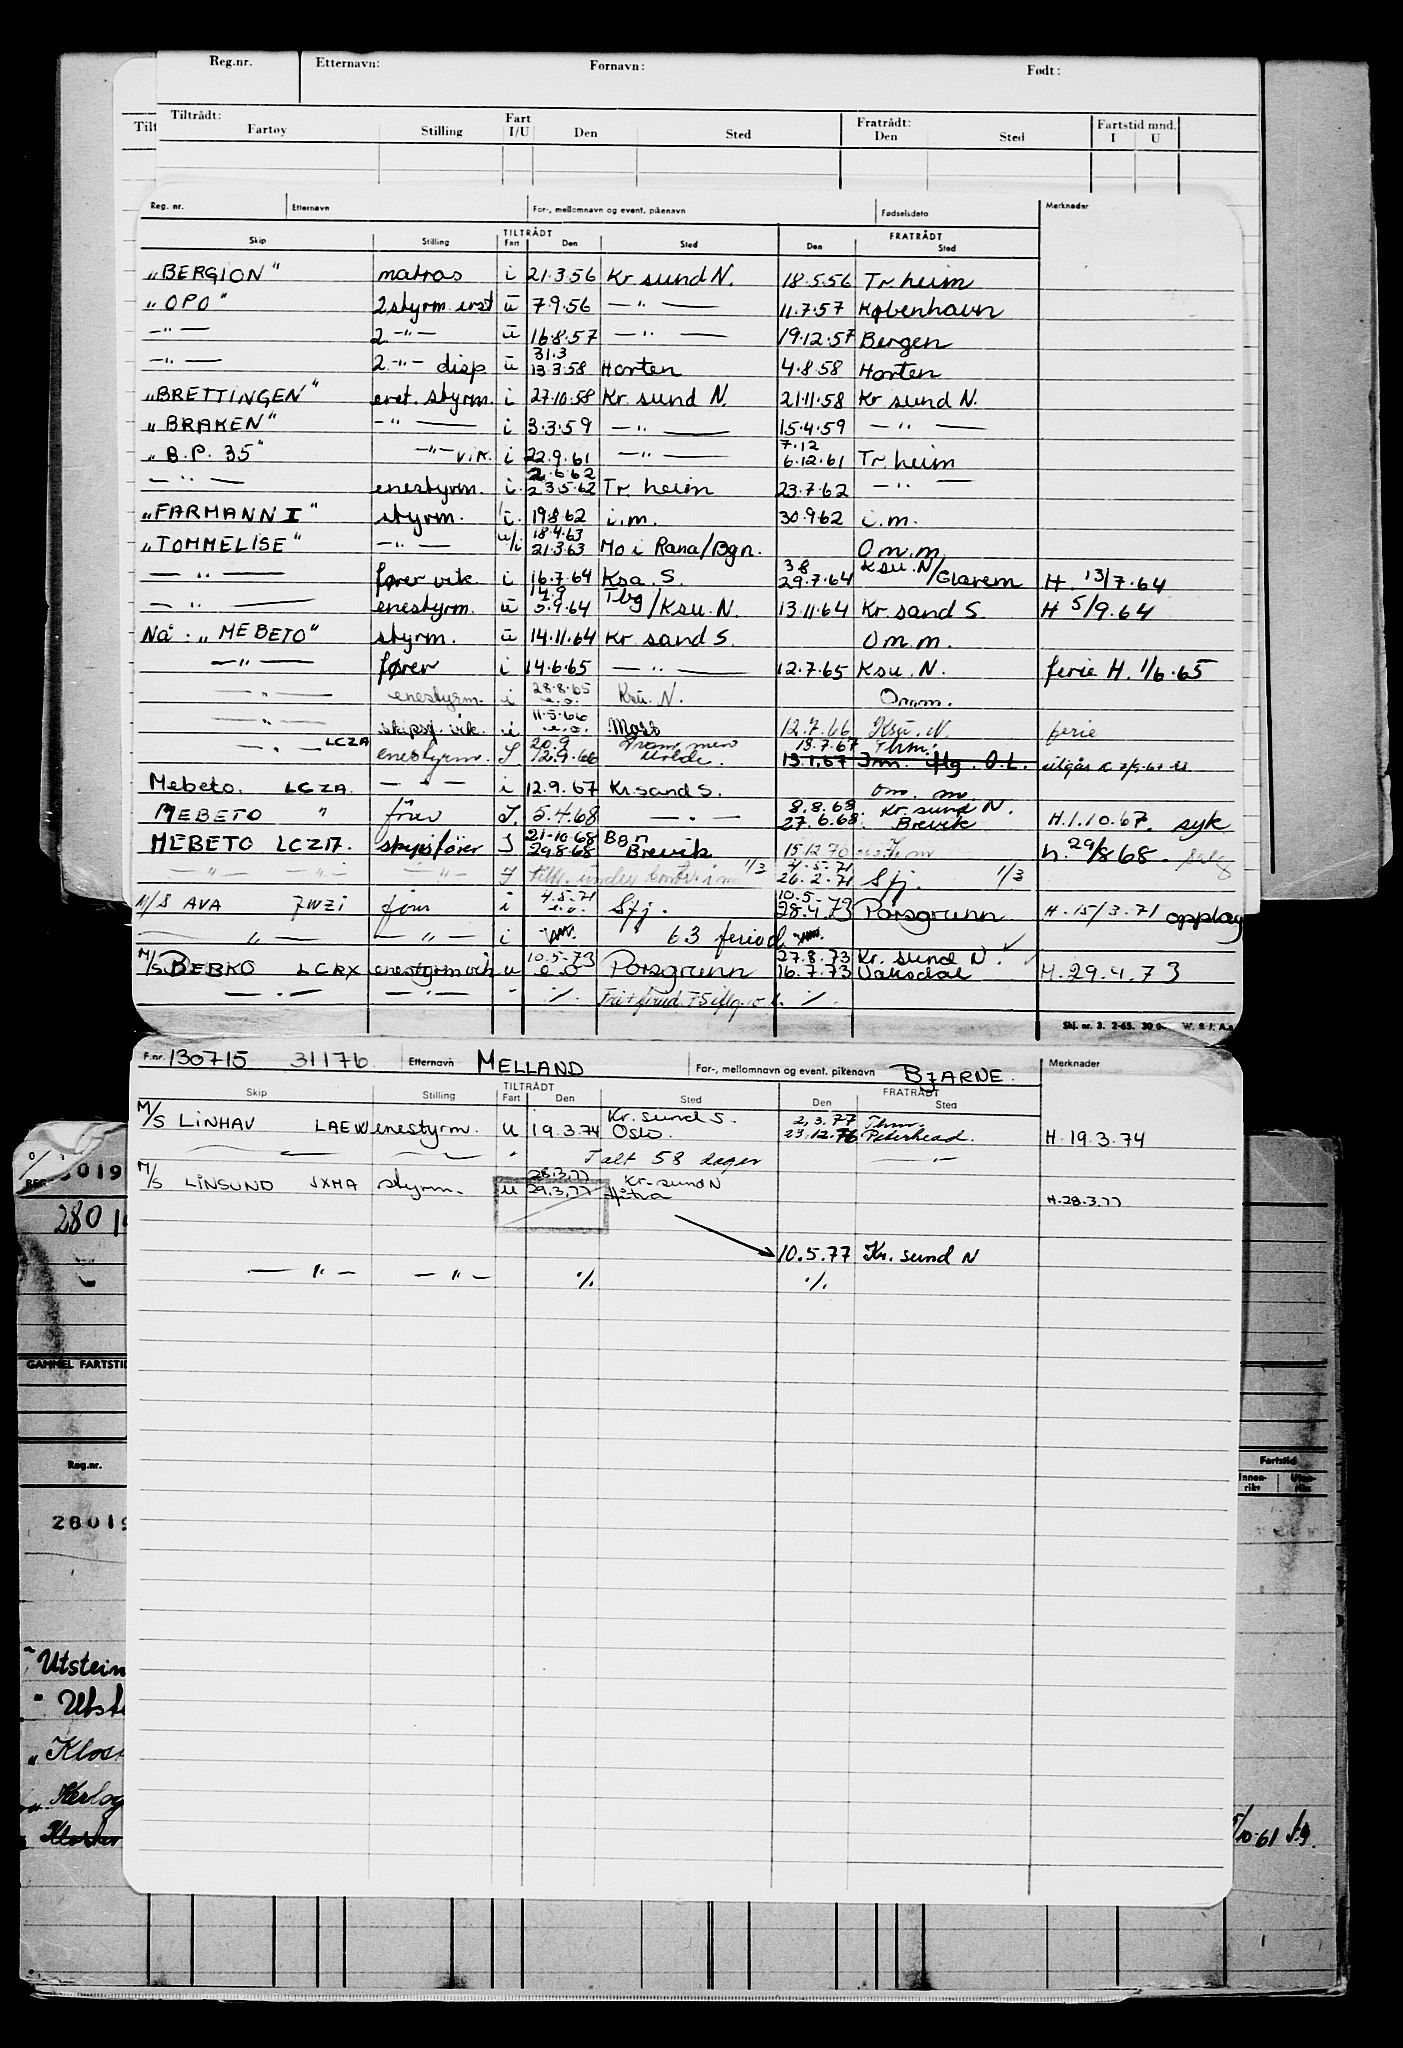 Reg.nr. Etternavn: Fornavn: Født:
Tiltrådt: Fratrådt:
Fartøy Stilling Fart I/U Den Sted Den Sted Fartstid mnd. I U
Reg. nr. Etternavn For-, mellomnavn og event. pikenavn Fødselsdato Merknader
TILTRÅDT FRATRÅDT
Skip Stilling Fart Den Sted Den Sted
"BERGION" matros i 21.3.56 Kr sund N. 18.5.56 Tr heim
"OPO" 2 styrm. erst u 7.9.56 —"— 11.7.57 København
—"— 2. —"— u 16.8.57 —"— 19.12.57 Bergen
31.3
—"— 2 —"— disp u 13.3.58 Horten 4.8.58 Horten
"BRETTINGEN" enest. styrm. i 27.10.58 Kr sund N. 21.11.58 Kr sund N.
"BRAKEN" —"— i 3.3.59 —"— 15.4.59 —"—
7.12
"B.P. 35" —"— vik. i 22.9.61 —"— 6.12.61 Tr heim
2.6.62
—"— enestyrm. i. 23.5.62 Tr. heim 23.7.62 —"—
"FARMANN I" styrm. i. 19.8.62 i.m. 30.9.62 i.m.
18.4.63
"TOMMELISE" —"— u/i 21.3.63 Mo i Rana/Bgn. Om.m.
3.8 Ksu. N/
—"— fører vik. i 16.7.64 Ksa. S. 29.7.64 Glarem H. 13/7.64
14.9 Tbg
—"— enestyrm. u 5.9.64 /Ksu. N. 13.11.64 Kr. sand S. H 5/9.64
Nå: "MEBETO" styrm. u 14.11.64 Kr sand S. Om.m.
—"— fører i 14.6.65 —"— 12.7.65 Ksu. N. ferie H. 1/6.65
28.8.65
—"— enestyrm. i e.o. Ksu. N. Om.m.
11.5.66
—"— skipsf. vik. i e.o. Moss 12.7.66 Ksu. N. ferie
LCZA 20.9 13.7.67 Thm.
—"— enestyrm. I 12.9.66 Molde. 13.1.67
Mebeto. LCZA. —"— i 12.9.67 Kr.sand S. om. m
8.8.68 Kr. sund N.
MEBETO " fører I. 5.4.68 —"— 27.6.68. Brevik H.1.10.67. syk
21.10.68 Bgn
MEBETO LCZA. skipsfører I 29.8.68 Brevik 15.12.70 h. 29/8 68.
1/3 4.5.71
—"— —"— I 26.2.71 Sfj. 1/3
4.5.71 10.5.
M/S AVA JWZI fører i e.o. Sfj. 28.4.73 Porsgrunn H. 15/3.71 opplag
—"— —"— i 63
10.5.73 27.8.73 Kr. sund N.
M/S BEBKO LCRX enestyrm vik u e.o Porsgrunn 16.7.73 Vaksdal H.29.4.73
—"— —"— " %. %.
Skj. nr. 3. 2-65.
F.nr. 130715 31176 Etternavn MELLAND For-, mellomnavn og event. pikenavn BJARNE. Merknader
TILTRÅDT FRATRÅDT
Skip Stilling Fart Den Sted Den Sted
Kr. sund S. 2.3.77 Thm.
M/S LINHAV LAEW enestyrm. u 19.3.74 Oslo. 23.12.76 Peterhead. H.19.3.74
I alt 58 dager —"—
28.3.77 Kr. sund N
M/S LINSUND JXMA styrm. u 29.3.77 Hitra H.28.3.77
10.5.77 Kr. sund N
—"— —"— % %.
280
GAMMEL FARTSTID
Reg.nr.
28019
Fartstid
Innenriks Utenriks
"Utstein
"Utst
"Klost
Kloster
10.61